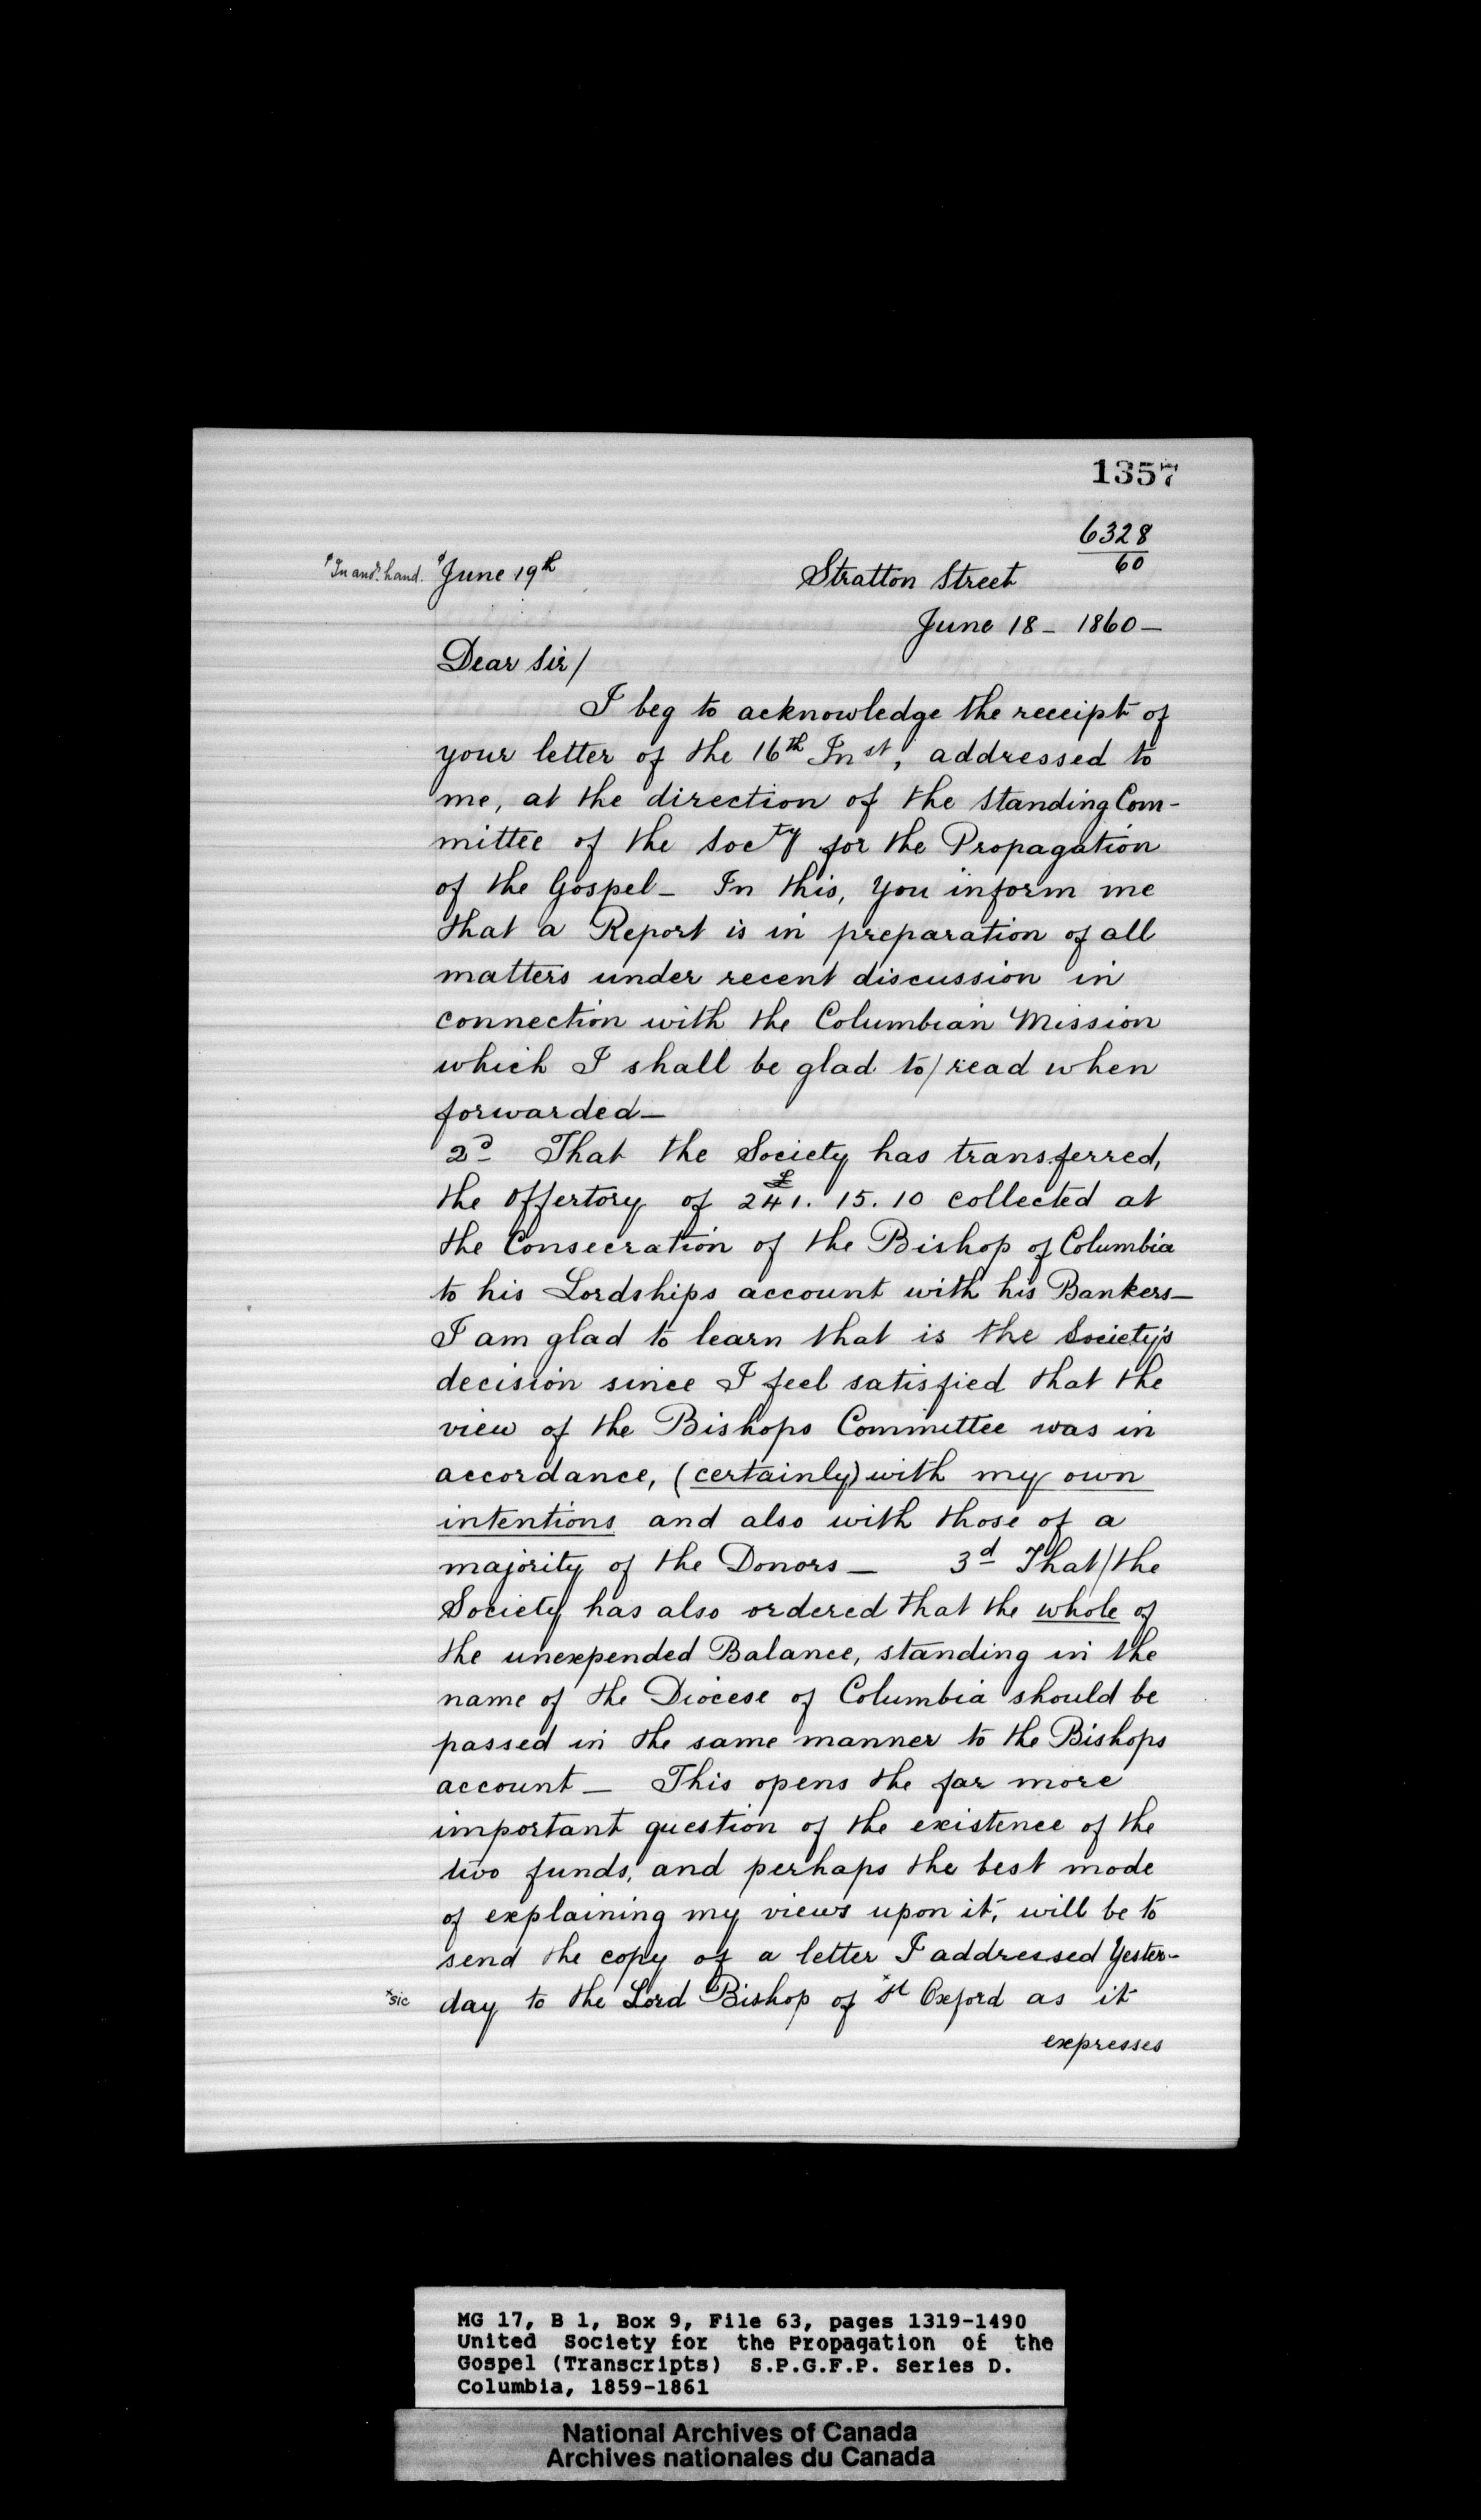 1357
6328
60
ᶲIn anor. hand. ᶲJune 19th
Stratton Street
June 18 - 1860 -
Dear Sir/
I beg to acknowledge the receipt of
your letter of the 16th Inst, addressed to
me, at the direction of the Standing Com-
mittee of the Socty for the Propagation
of the Gospel - In this, you inform me
that a Report is in preparation of all
matters under recent discussion in
connection with the Columbian Mission
which I shall be glad to/read when
forwarded -
2d That the Society has transferred,
the Offertory of £241. 15. 10 collected at
the Consecration of the Bishop of Columbia
to his Lordships account with his Bankers -
I am glad to learn that is the Society's
decision since I feel satisfied that the
view of the Bishops Committee was in
accordance, (certainly) with my own
intentions and also with those of a
majority of the Donors - 3d That/the
Society has also ordered that the whole of
the unexpended Balance, standing in the
name of the Diocese of Columbia should be
passed in the same manner to the Bishops
account - This opens the far more
important question of the existence of the
two funds, and perhaps the best mode
of explaining my views upon it, will be to
send the copy of a letter I addressed Yester-
xsic day to the Lord Bishop of xSt Oxford as it
expresses
MG 17, B 1, Box 9, File 63, pages 1319-1490
United Society for the Propagation of the
Gospel (Transcripts) S.P.G.F.P. Series D.
Columbia, 1859-1861
National Archives of Canada
Archives nationales du Canada